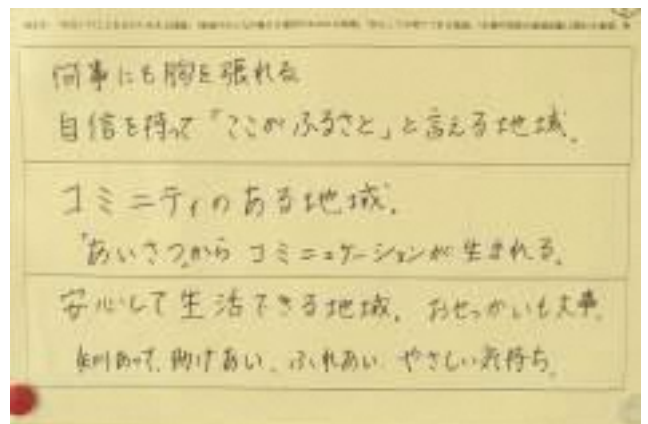 何事にも胸を張れる
自信を持って「ここがふるさと」と言える地域。
コミニティのある地域。
"あいさつ"から コミニュケーションが生まれる。
安心して生活できる地域。おせっかいも大事。
知りあって、助けあい、ふれあい やさしい気持ち。